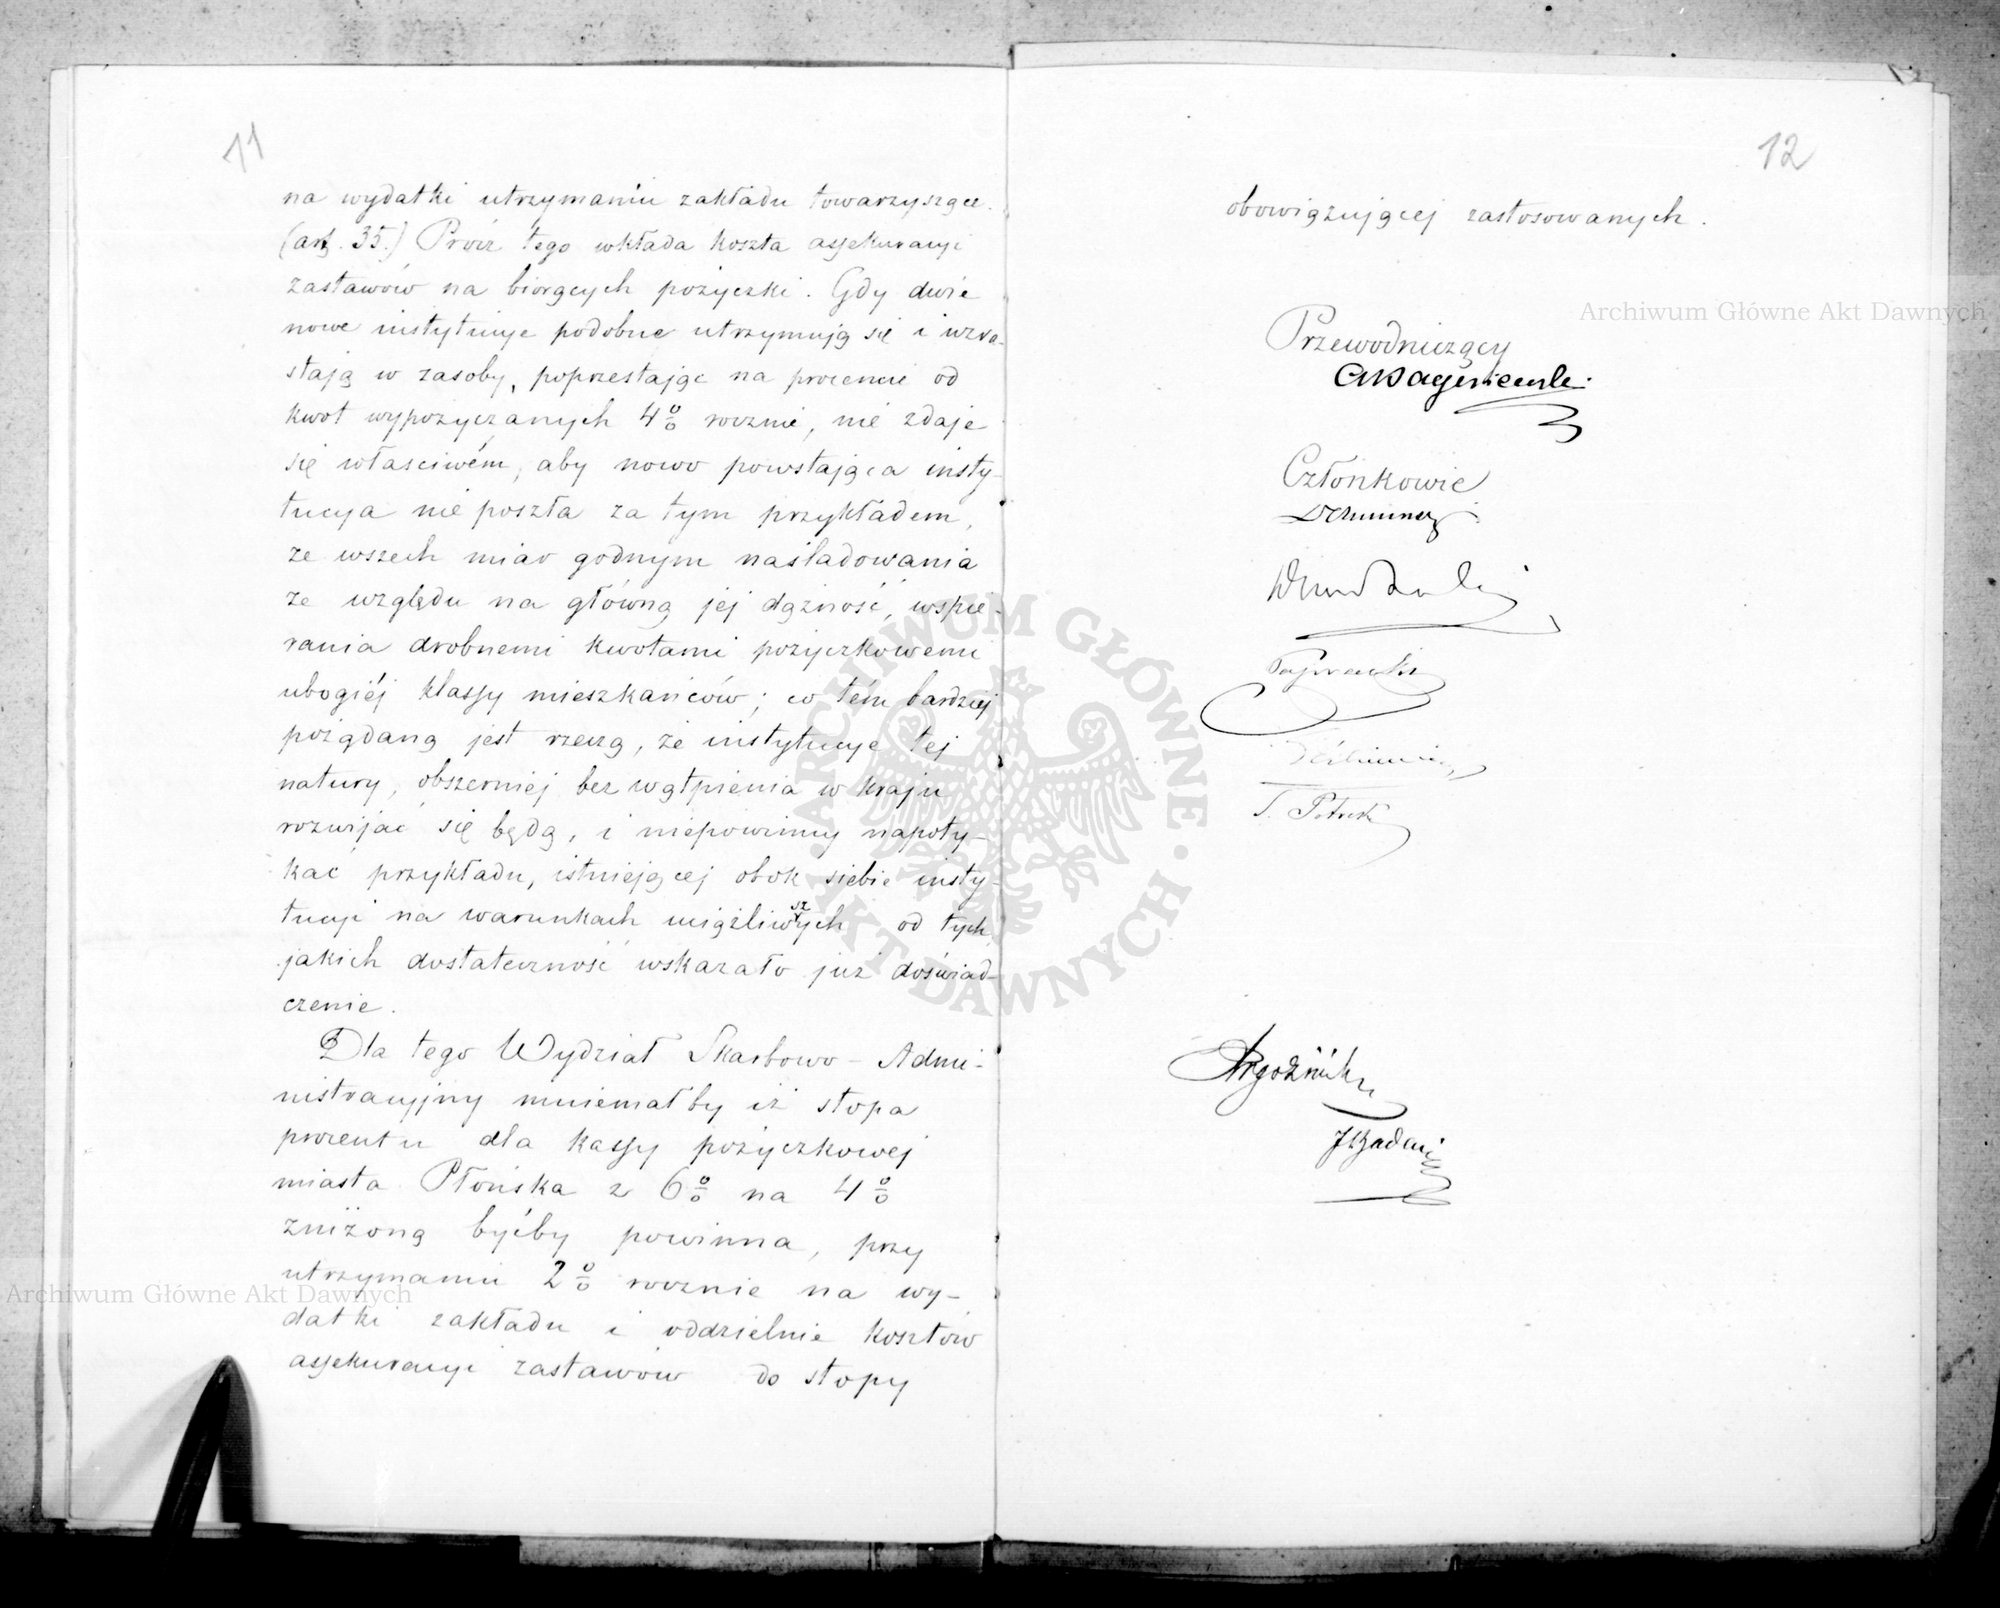 11
na wydatki utrzymaniu zakładu towarzyszące.
(art. 35.) Prócz tego wkłada koszta assekuracyi
zastawów na biorących pożyczki. Gdy dwie
nowe instytucye podobne utrzymują się i wzra-
stają w zasoby, poprzestając na procencie od
kwot wypożyczanych 4% rocznie, nie zdaje
się właściwém, aby nowo powstająca insty-
tucya nie poszła za tym przykładem,
ze wszech miar godnym naśladowania
ze względu na główną jej dążność, wspie-
rania drobnemi kwotami pożyczkowemi
ubogiéj klassy mieszkańców; co tém bardziej
pożądaną jest rzeczą, że instytucye tej
natury, obszerniej bez wątpienia w kraju
rozwijać się będą, i niepowinny napoty-
kać przykładu, istniejącej obok siebie insty-
tucyi na warunkach uciążliwszych od tych,
jakich dostateczność wskazało już doświad-
czenie.
Dla tego Wydział Skarbowo - Admi-
nistracyjny mniemałby iż stopa
procentu dla kassy pożyczkowej
miasta Płońska z 6% na 4%
zniżoną byćby powinna, przy
utrzymaniu 2% rocznie na wy-
datki zakładu i oddzielnie kosztów
assekuracyi zastawów do stopy
12
obowiązującej zastosowanych.
Przewodniczący
Członkowie
Archiwum Główne Akt Dawnych
Archiwum Główne Akt Dawnych
ARCHIWUM GŁÓWNE · AKT DAWNYCH ·